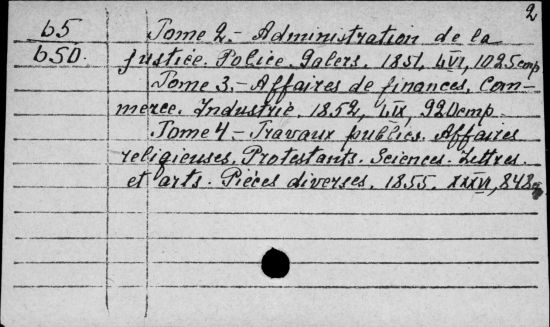 2
65 Tome 2.- Administration de la
650. justice. Police. Galers. 1851, LVI, 1025 стр
Tome 3.- Affaires de finances. Com-
merce. Industrie. 1852, LIX, 920 стр.
Tome 4.- Travaux publics. Affaires
religieuses, Protestants. Sciences. Lettres.
et arts. Pièces diverses. 1855. XXXVI, 848